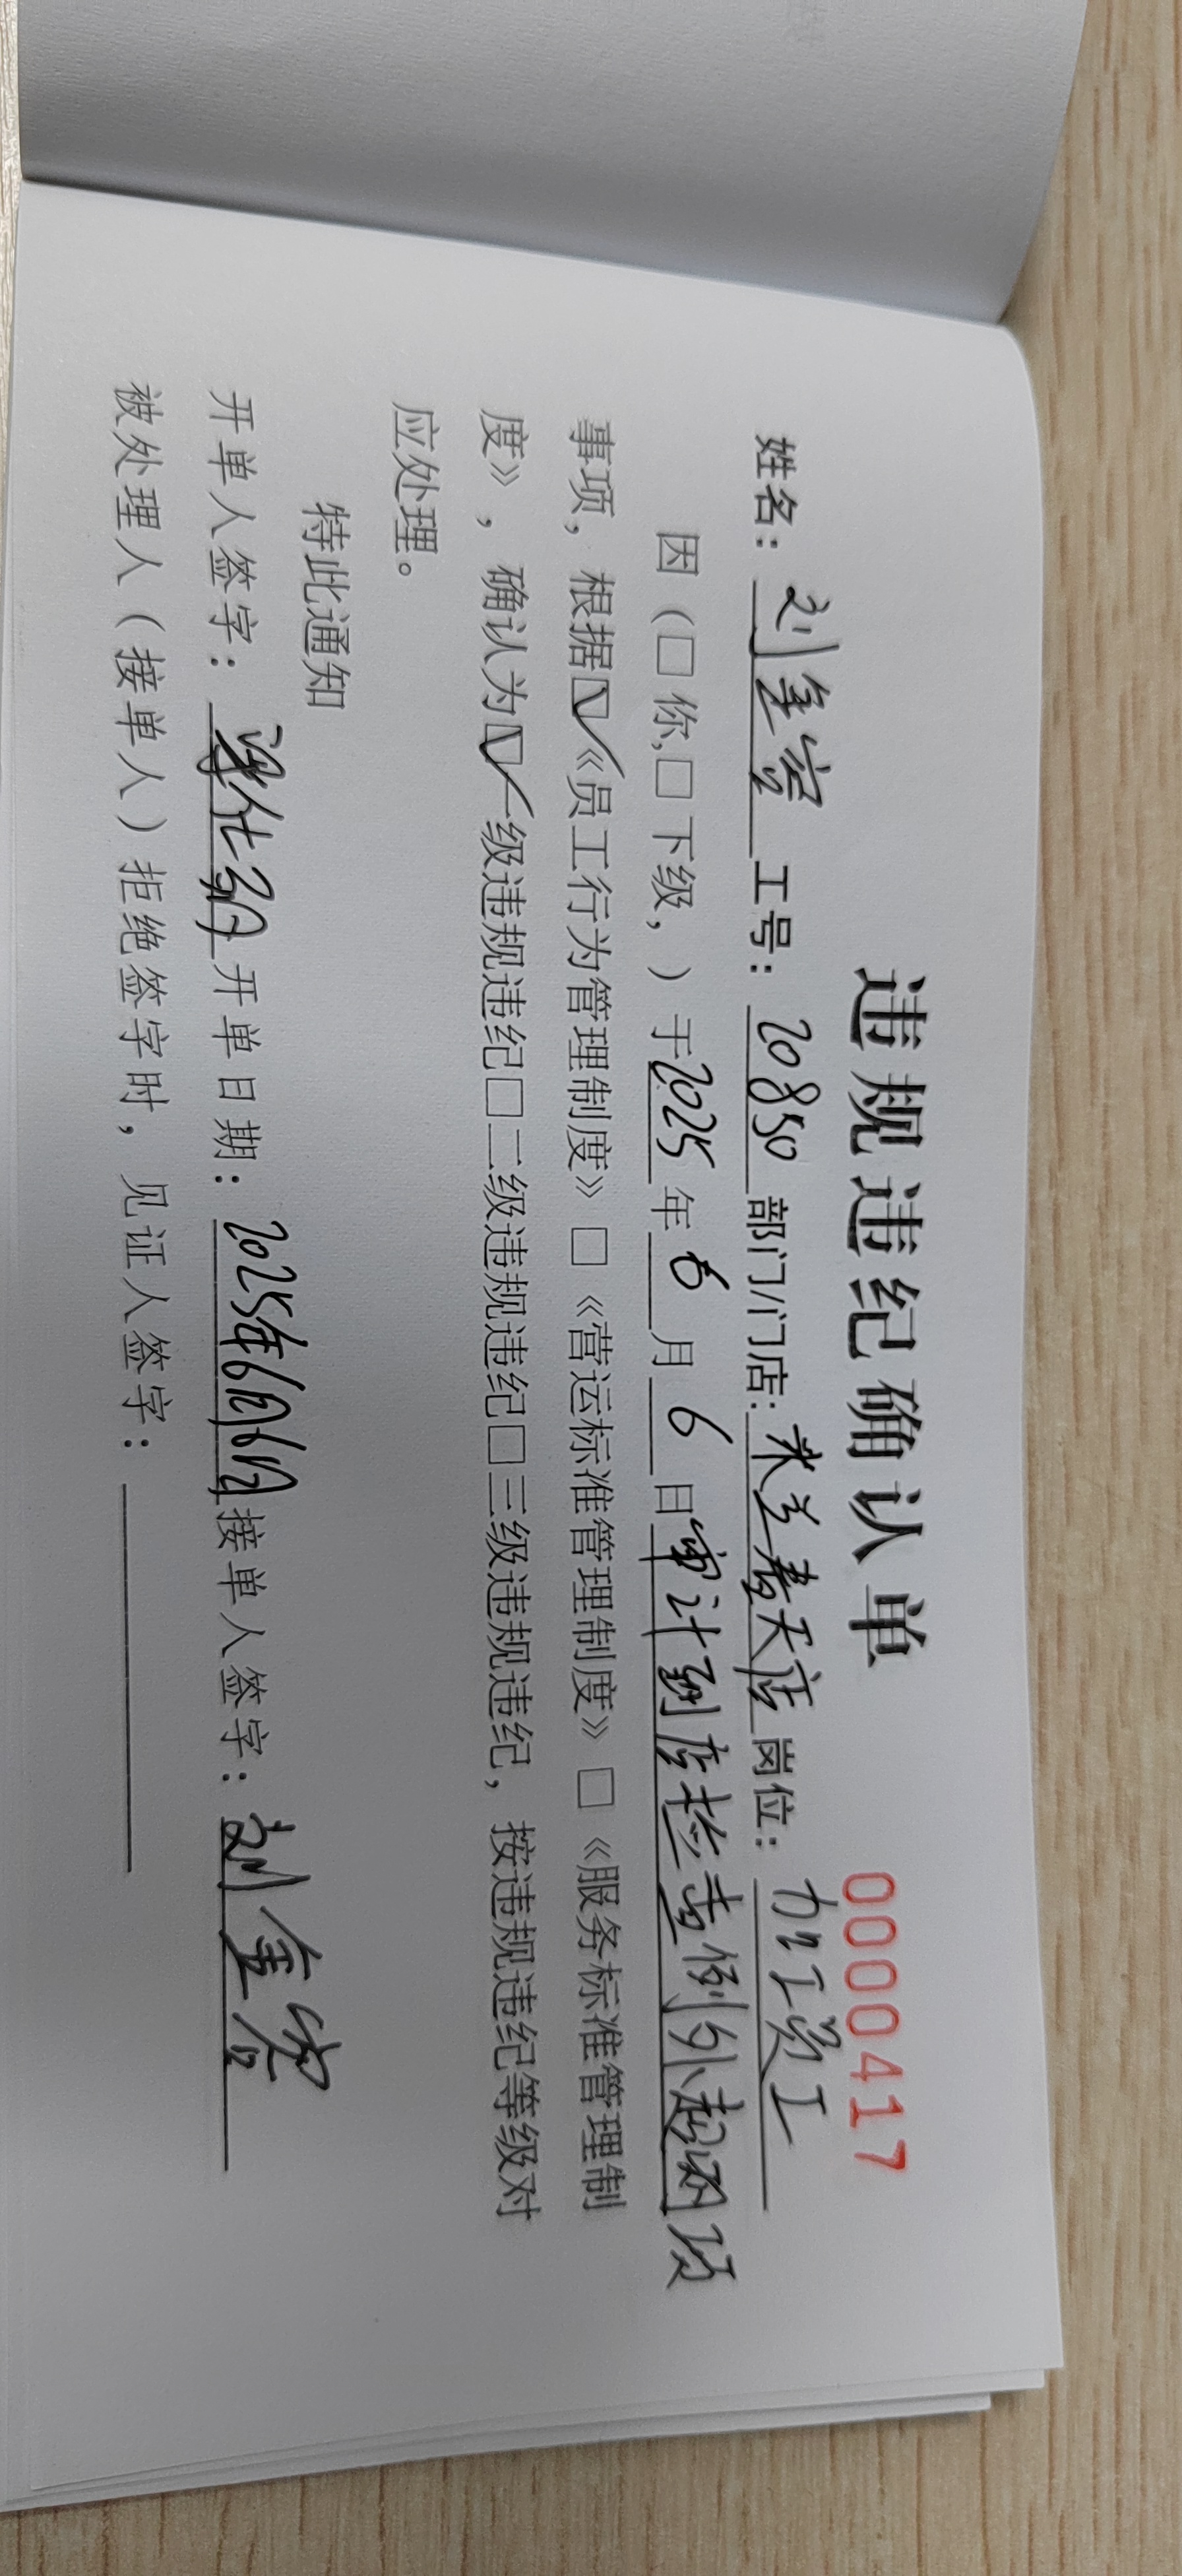 违规违纪确认单
0000417
姓名：刘金 工号：20850 部门/门店：米兰春天店 岗位：加工员工
因（□你,□下级，）于2025年6月6日审计到店 例外超两项
事项，根据☑《员工行为管理制度》□《营运标准管理制度》□《服务标准管理制
度》，确认为☑一级违规违纪□二级违规违纪□三级违规违纪，按违规违纪等级对
应处理。
特此通知
开单人签字： 开单日期：2025年6月6日接单人签字：刘金
被处理人（接单人）拒绝签字时，见证人签字：